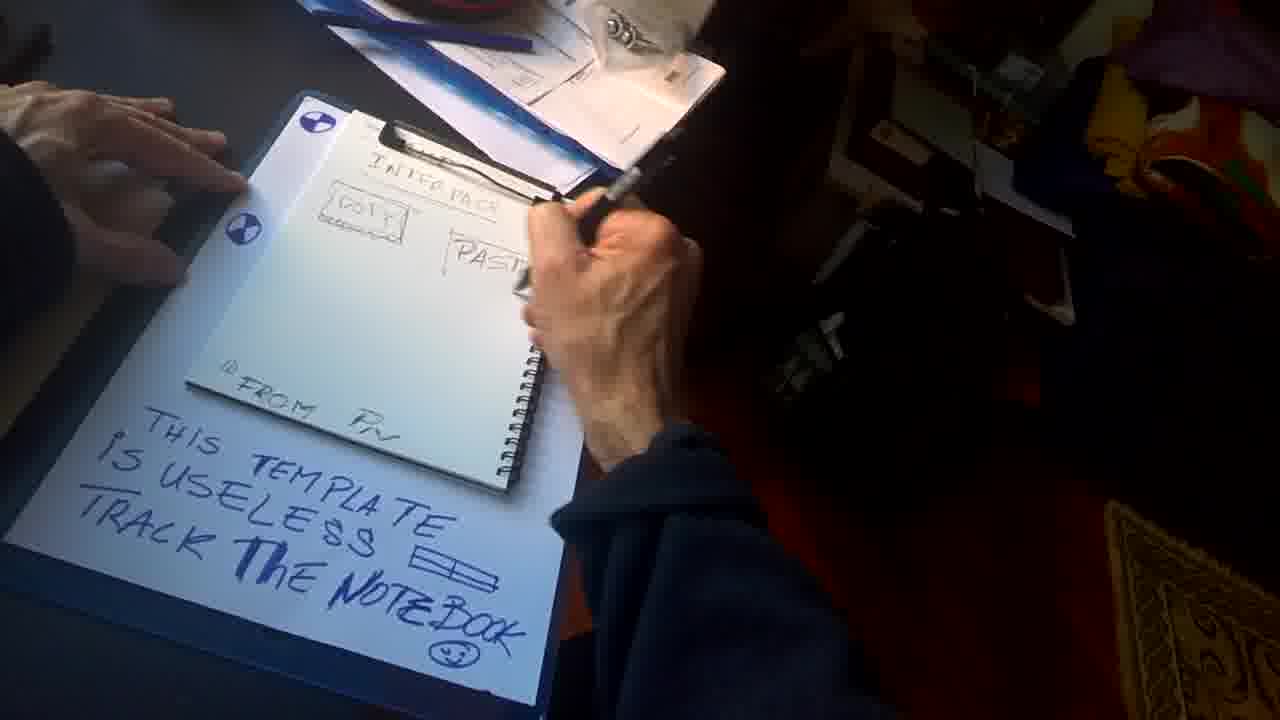 INTERFACE
COPY
PAST
FROM
THIS TEMPLATE
IS USELESS
TRACK THE NOTEBOOK